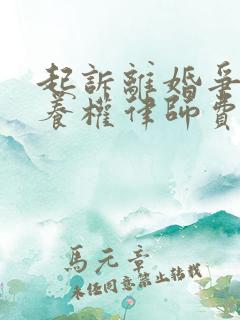 起訴離婚爭
養權律師費
馬元章
未經同意禁止轉載